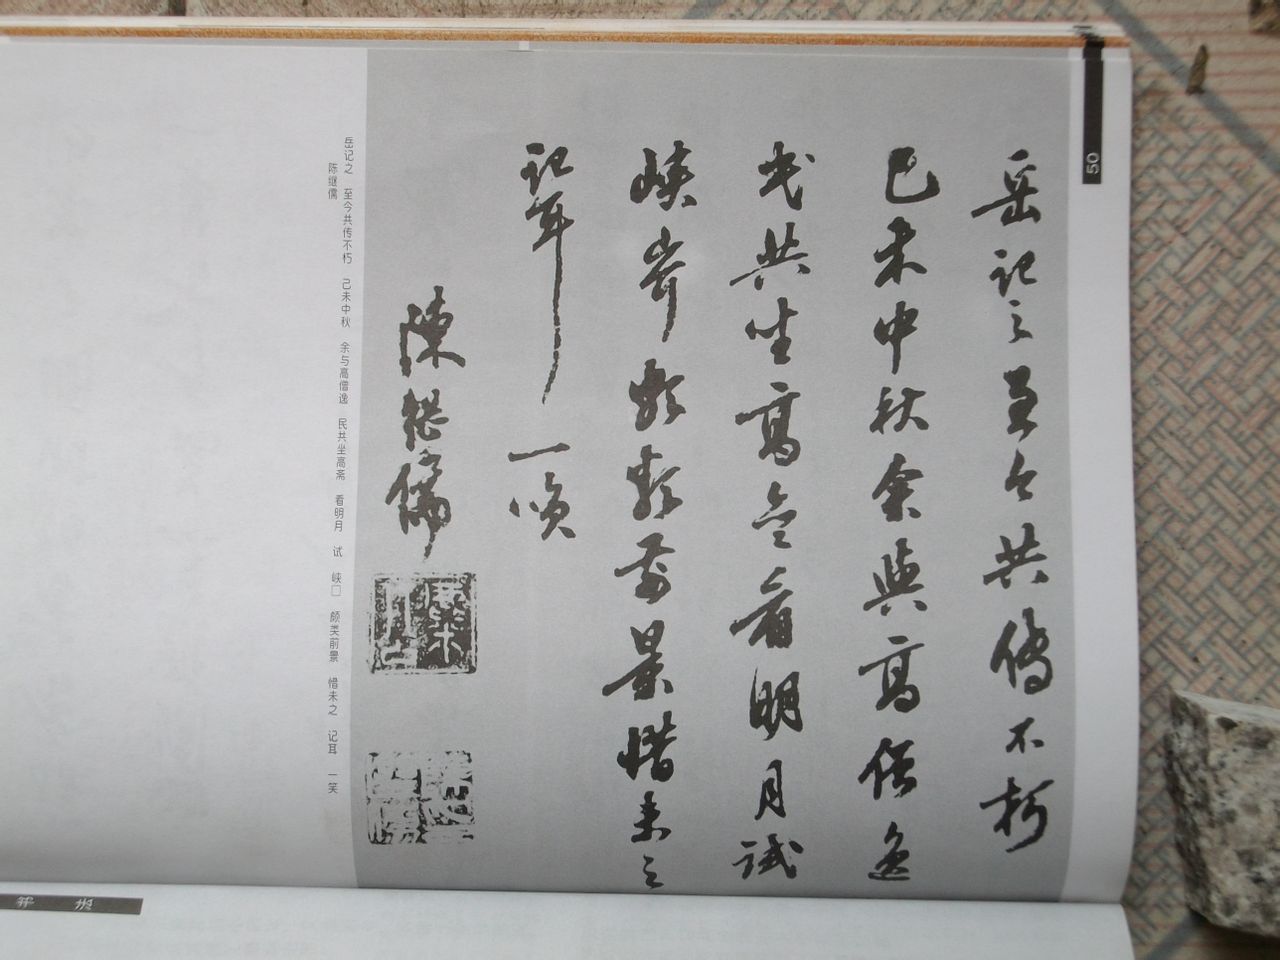 50
岳記之至今共傳不朽
己未中秋余與高僧逸
民共坐高斋看明月試
峡頗類前景惜未之
記耳 一咲
陳継儒
岳记之 至今共传不朽 己未中秋 余与高僧逸 民共坐高斋 看明月 试 峡□ 颇类前景 惜未之 记耳 一笑
陈继儒